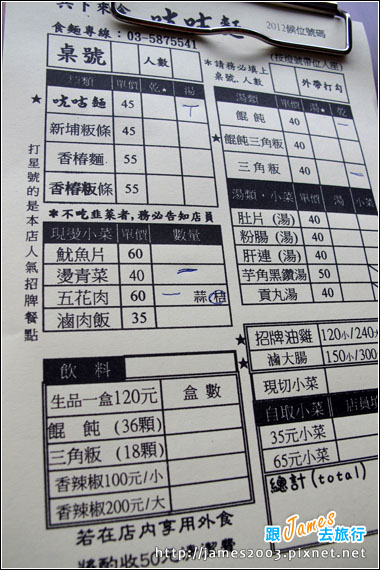 共下來食 咕咕麵
2012候位號碼
食麵專線:03-5875541
(按燈號帶位入座)
桌號 人數
*請務必填上
桌號.人數
外帶打勾
麵類 單價 乾★ 湯
★ 咕咕麵 45
新埔粄條 45
香椿麵 55
香椿粄條 55
湯類 單價 湯 乾
餛飩 40
★ 餛飩三角粄 40
三角粄 40
*不吃韭菜者,務必告知店員
湯類·小菜 單價 湯 小菜
肚片(湯) 40
粉腸(湯) 40
肝連(湯) 40
芋角黑鑽湯 50
貢丸湯 40
現燙小菜 單價 數量
魷魚片 60
燙青菜 40
五花肉 60 蒜 桔
滷肉飯 35
打星號的是本店人氣招牌餐點
★ 招牌油雞 120小/240大
★ 滷大腸 150小/300
現切小菜
自取小菜 店員填
35元小菜
65元小菜
總計(total)
飲料
生品一盒120元 盒數
餛飩(36顆)
三角粄(18顆)
香辣椒100元/小
香辣椒200元/大
若在店内享用外食
將酌收50元清潔費
跟James去旅行
http://james2003.pixnet.net